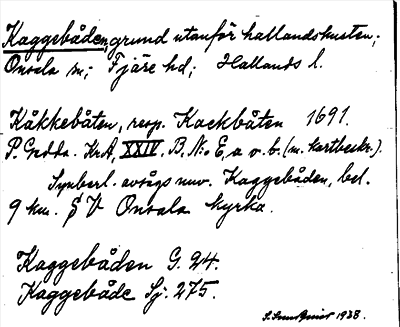 Kaggebåden, grund utanför hallandskusten;
Onsala sn; Fjäre hd; Hallands l.
Kåkkebåten, resp. Kackbåten 1691.
P. Gedda. KrA, XXIV. B. No E, a o. b. (m. kartbeskr.).
Synberl. avsågs nuv. Kaggebåden, bel.
9 km. S V Onsala kyrka.
Kaggebåden G. 24.
Kaggebåde Sj. 275.
1938.